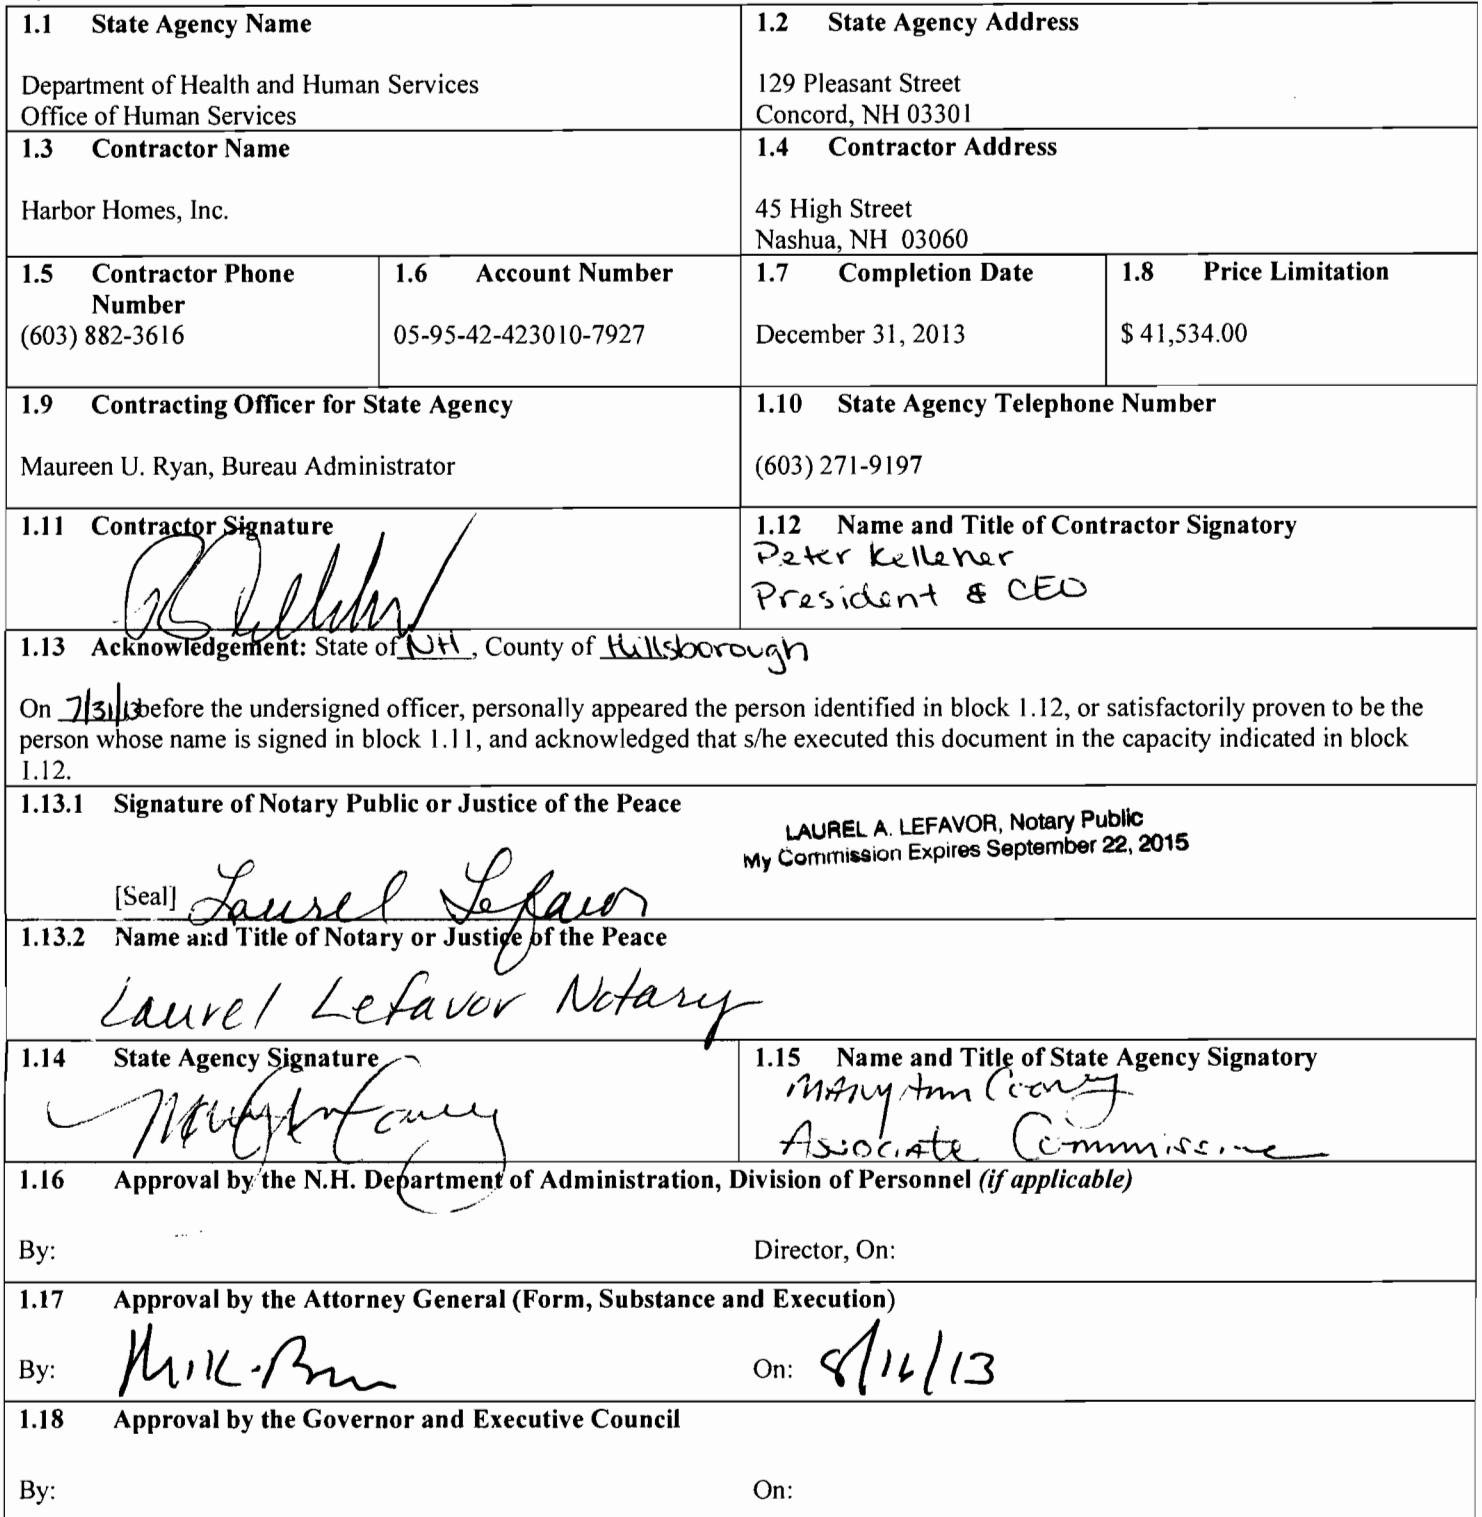 1.1 State Agency Name
Department of Health and Human Services
Office of Human Services
1.2 State Agency Address
129 Pleasant Street
Concord, NH 03301
1.3 Contractor Name
Harbor Homes, Inc.
1.4 Contractor Address
45 High Street
Nashua, NH 03060
1.5 Contractor Phone
Number
(603) 882-3616
1.6 Account Number
05-95-42-423010-7927
1.7 Completion Date
December 31, 2013
1.8 Price Limitation
$ 41,534.00
1.9 Contracting Officer for State Agency
Maureen U. Ryan, Bureau Administrator
1.10 State Agency Telephone Number
(603) 271-9197
1.11 Contractor Signature
1.12 Name and Title of Contractor Signatory
Peter Kelleher
President & CEO
1.13 Acknowledgement: State of NH, County of Hillsborough
On 7/31/13 before the undersigned officer, personally appeared the person identified in block 1.12, or satisfactorily proven to be the
person whose name is signed in block 1.11, and acknowledged that s/he executed this document in the capacity indicated in block
1.12.
1.13.1 Signature of Notary Public or Justice of the Peace
LAUREL A. LEFAVOR, Notary Public
My Commission Expires September 22, 2015
[Seal] Laurel Lefavor
1.13.2 Name and Title of Notary or Justice of the Peace
Laurel Lefavor Notary
1.14 State Agency Signature
1.15 Name and Title of State Agency Signatory
Mary Ann Cooney
Associate Commissione
1.16 Approval by the N.H. Department of Administration, Division of Personnel (if applicable)
By:
Director, On:
1.17 Approval by the Attorney General (Form, Substance and Execution)
By:
On: 8/16/13
1.18 Approval by the Governor and Executive Council
By:
On: